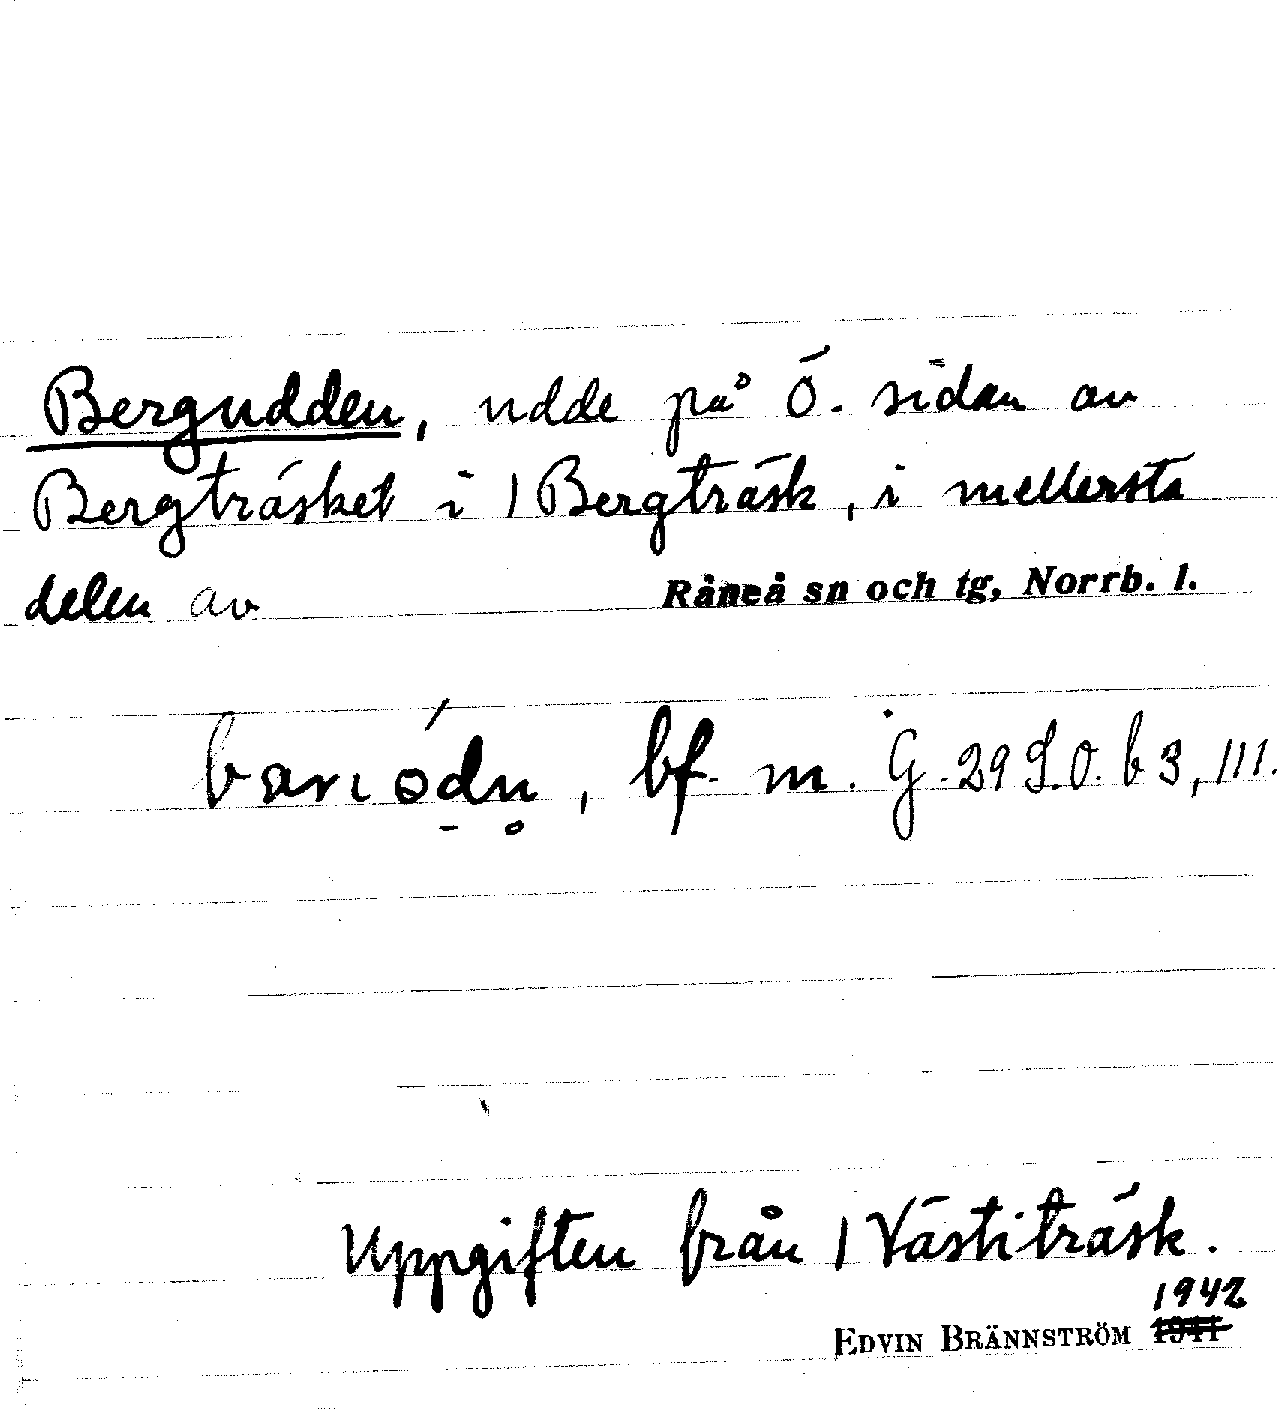 Bergudden, udde på Ö. sidan av
Bergträsket i / Bergträsk, i mellersta
delen av Råneå sn och tg, Norrb. l.
bf. m. G. 29 S.O. b 3, III.
Uppgiften från / Västiträsk.
1942
EDVIN BRÄNNSTRÖM 1941